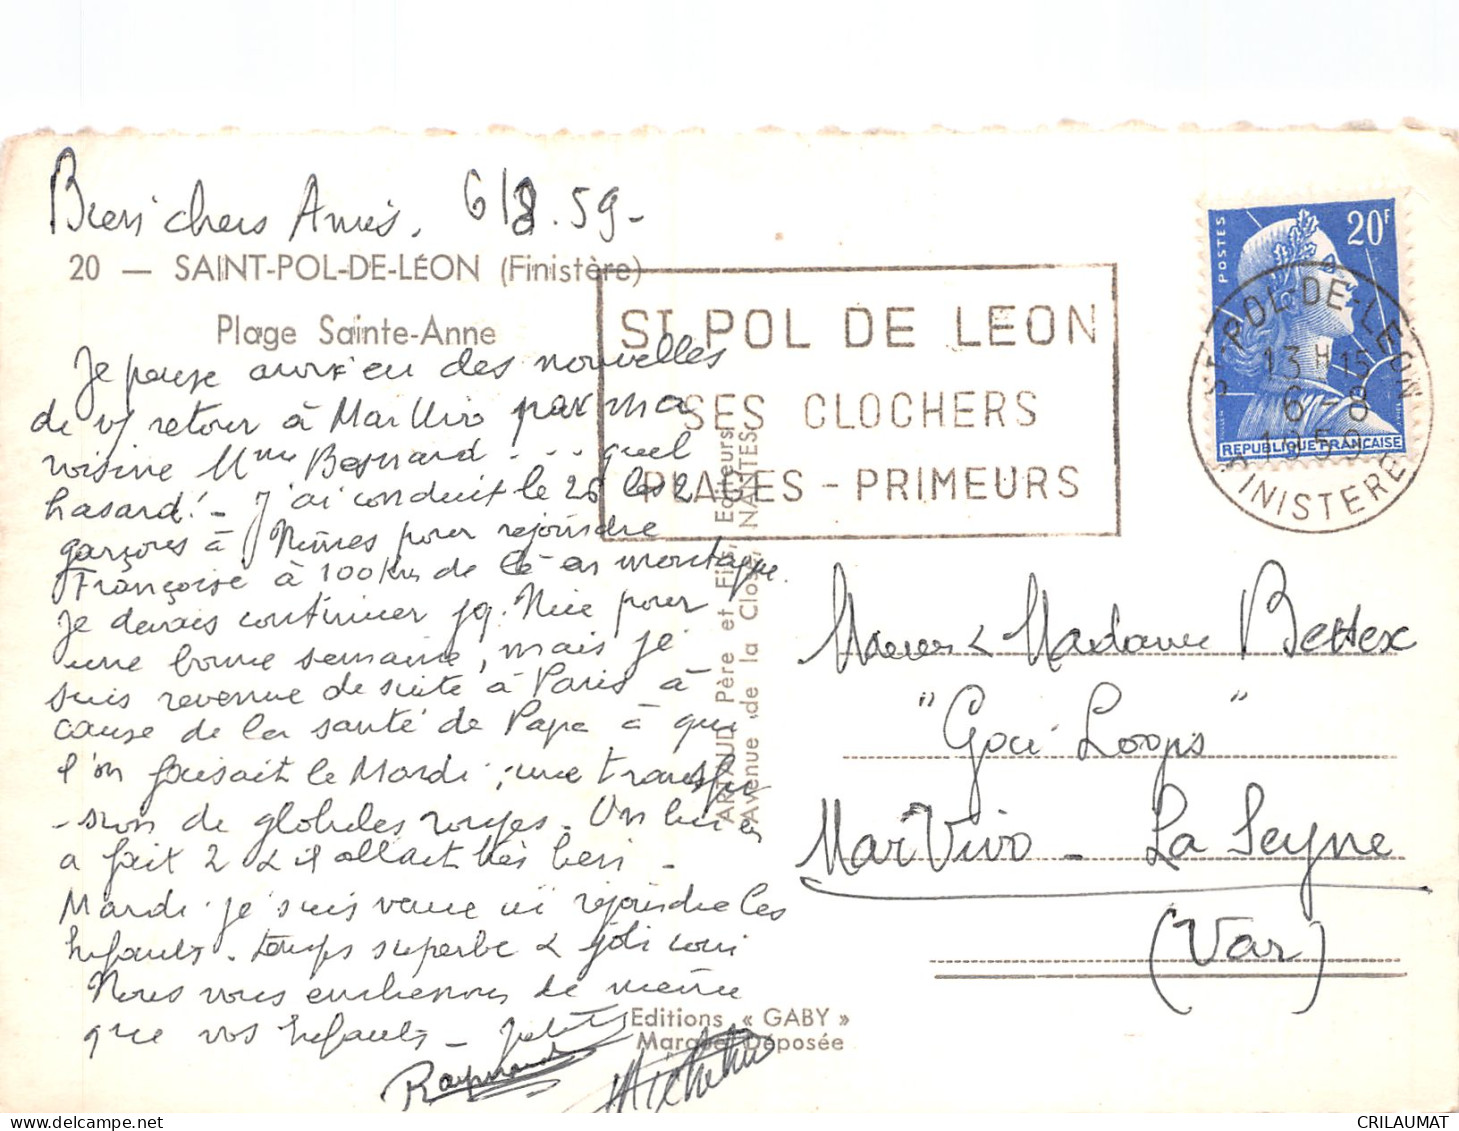 Bien chers Amis, 6/8.59-
20 — SAINT-POL-DE-LÉON (Finistère)
Plage Sainte-Anne
Je pense avoir eu des nouvelles
de v/ retour à Mar Vivo par ma
voisine Mme Besnard ... quel
hasard! - J'ai conduit le 26 les 2
garçons à Nîmes pour rejoindre
Françoise à 100 km de là en montagne.
Je devais continuer jq. Nice pour
une bonne semaine, mais je
suis revenue de suite à Paris à
cause de la santé de Papa à qui
l'on faisait le Mardi, une transfu
-sion de globules rouges. On lui en
a fait 2 & il allait très bien -
Mardi je suis venue ici rejoindre les
enfants. temps superbe & joli coin
Nous vous embrassons de même
que vos enfants -
Raymond
ST POL DE LEON
SES CLOCHERS
PLAGES - PRIMEURS
POSTES
20F
REPUBLIQUE FRANÇAISE
ST-POL-DE-LEON
13 H 15
6 - 8
1959
FINISTERE
ARTAUD Père et Fils, Editeurs
Avenue de la Close, NANTES
Editions « GABY »
Marque Déposée
& Madame Bettex
"Goci Loops"
Mar Vivo - La Seyne
(Var)
CRILAUMAT